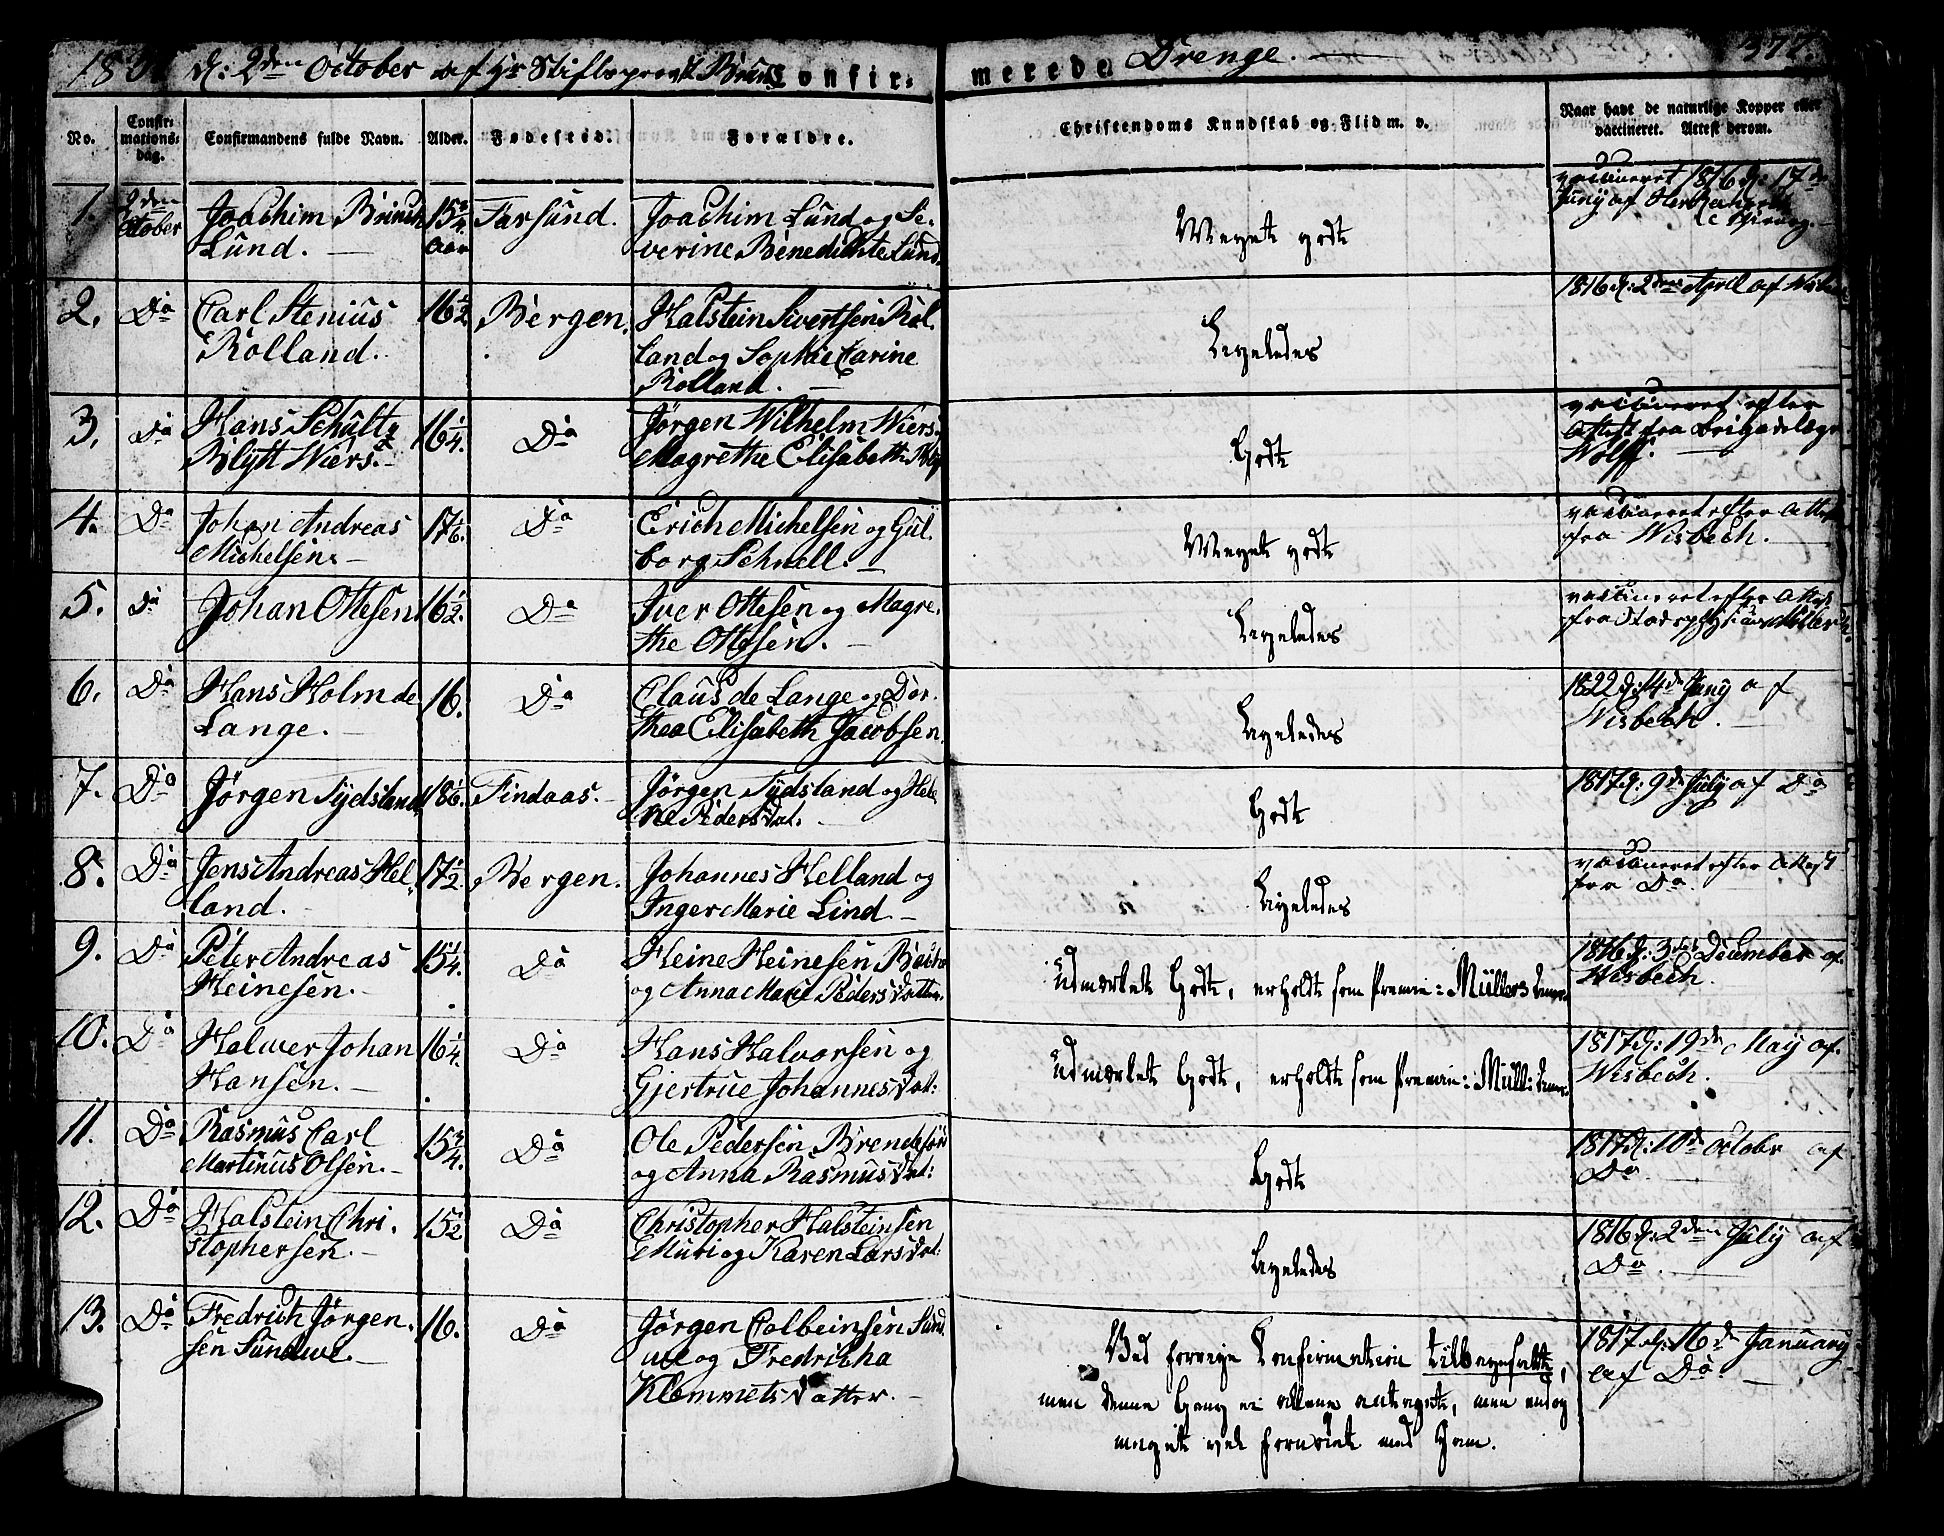 d: 2den October af Hr Stiftsprovst
Confir-
merede Drenge.
377.
No.
Confir-
mations-
dag.
Confirmandens fulde Navn.
Alder.
Fødested.
Forældre.
Christendoms Kundskab og Flid m. v.
Naar havt de naturlige Kopper eller
vaccineret. Attest derom.
1.
2den
October
Joachim Brinch
Lund.
15 3/4
Aar
Farsund.
Joachim Lund og Se-
verine Benedichte Lund.
Meget godt
vaccineret 1816 d: 17de
Juny af
2.
Do
Carl Stenius
Rolland.
16 1/2
Bergen.
Halstein Sivertsen Rol-
land og Sophie Carine
Rolland.
Ligeledes
1816 d: 2den April af
3.
Do
Hans Schultz
Blytt Wiers.
16 1/4.
Do
Jørgen Wilhelm Wiers
Magrethe Elisabeth
Godt
vaccineret efter
Attest fra Brigadelæge
Wolff.
4.
Do
Johan Andreas
Michelsen.
17 1/6.
Do
Erich Michelsen og Gul-
borg Schnell.
Meget godt
vaccineret efter Attest
fra Wisbech.
5.
Do
Johan Ottesen
16 1/2.
Do
Iver Ottesen og Magre-
the Ottesen.
Ligeledes
vaccineret efter Attest
fra Stadsphysicus
6.
Do
Hans Holm de
Lange.
16.
Do
Claus de Lange og Dor-
thea Elisabeth Jacobsen.
Ligeledes
1822 d: 14de Juny af
Wisbech.
7.
Do
Jørgen Sydsland
18 1/6.
Findaas.
Jørgen Sydsland og Hele-
ne Pedersdat.
Godt
1817 d: 9de July af Do
8.
Do
Jens Andreas Hel-
land.
17 1/2.
Bergen.
Johannes Helland og
Inger Marie Lind
Ligeledes
vaccineret efter Attest
fra Do
9.
Do
Peter Andreas
Heinesen.
15 1/4.
Do
Heine Heinesen
og Anna Marie Pedersdatter.
Udmærket Godt, erholdt som Premie: Müllers
1816 d: 3die December af
Wisbech.
10.
Do
Halver Johan
Hansen.
16 1/4.
Do
Hans Halvorsen og
Gjertrue Johannesdat:
Udmærket Godt, erholdt som Premie: Müll:
1817 d: 19de May af
Wisbech.
11.
Do
Rasmus Carl
Martinus Olsen.
15 3/4.
Do
Ole Pedersen
og Anna Rasmusdat:
Godt
1817 d: 10de October af
Do
12.
Do
Halstein Chri-
stophersen.
15 1/2
Do
Christopher Halsteinsen
Muri og Karen Larsdat:
Ligeledes
1816 d: 2den July af
Do
13.
Do
Fredrich Jørgen-
sen Sundwe.
16.
Do
Jørgen Colbeinsen Sund-
we og Fredricha
Klemmetsdatter.
Ved forrige Confirmation tilbagesatte,
men denne Gang ei allene antagen, men endog
meget vel fornøiet med Ham.
1817 d: 16de January
af Do